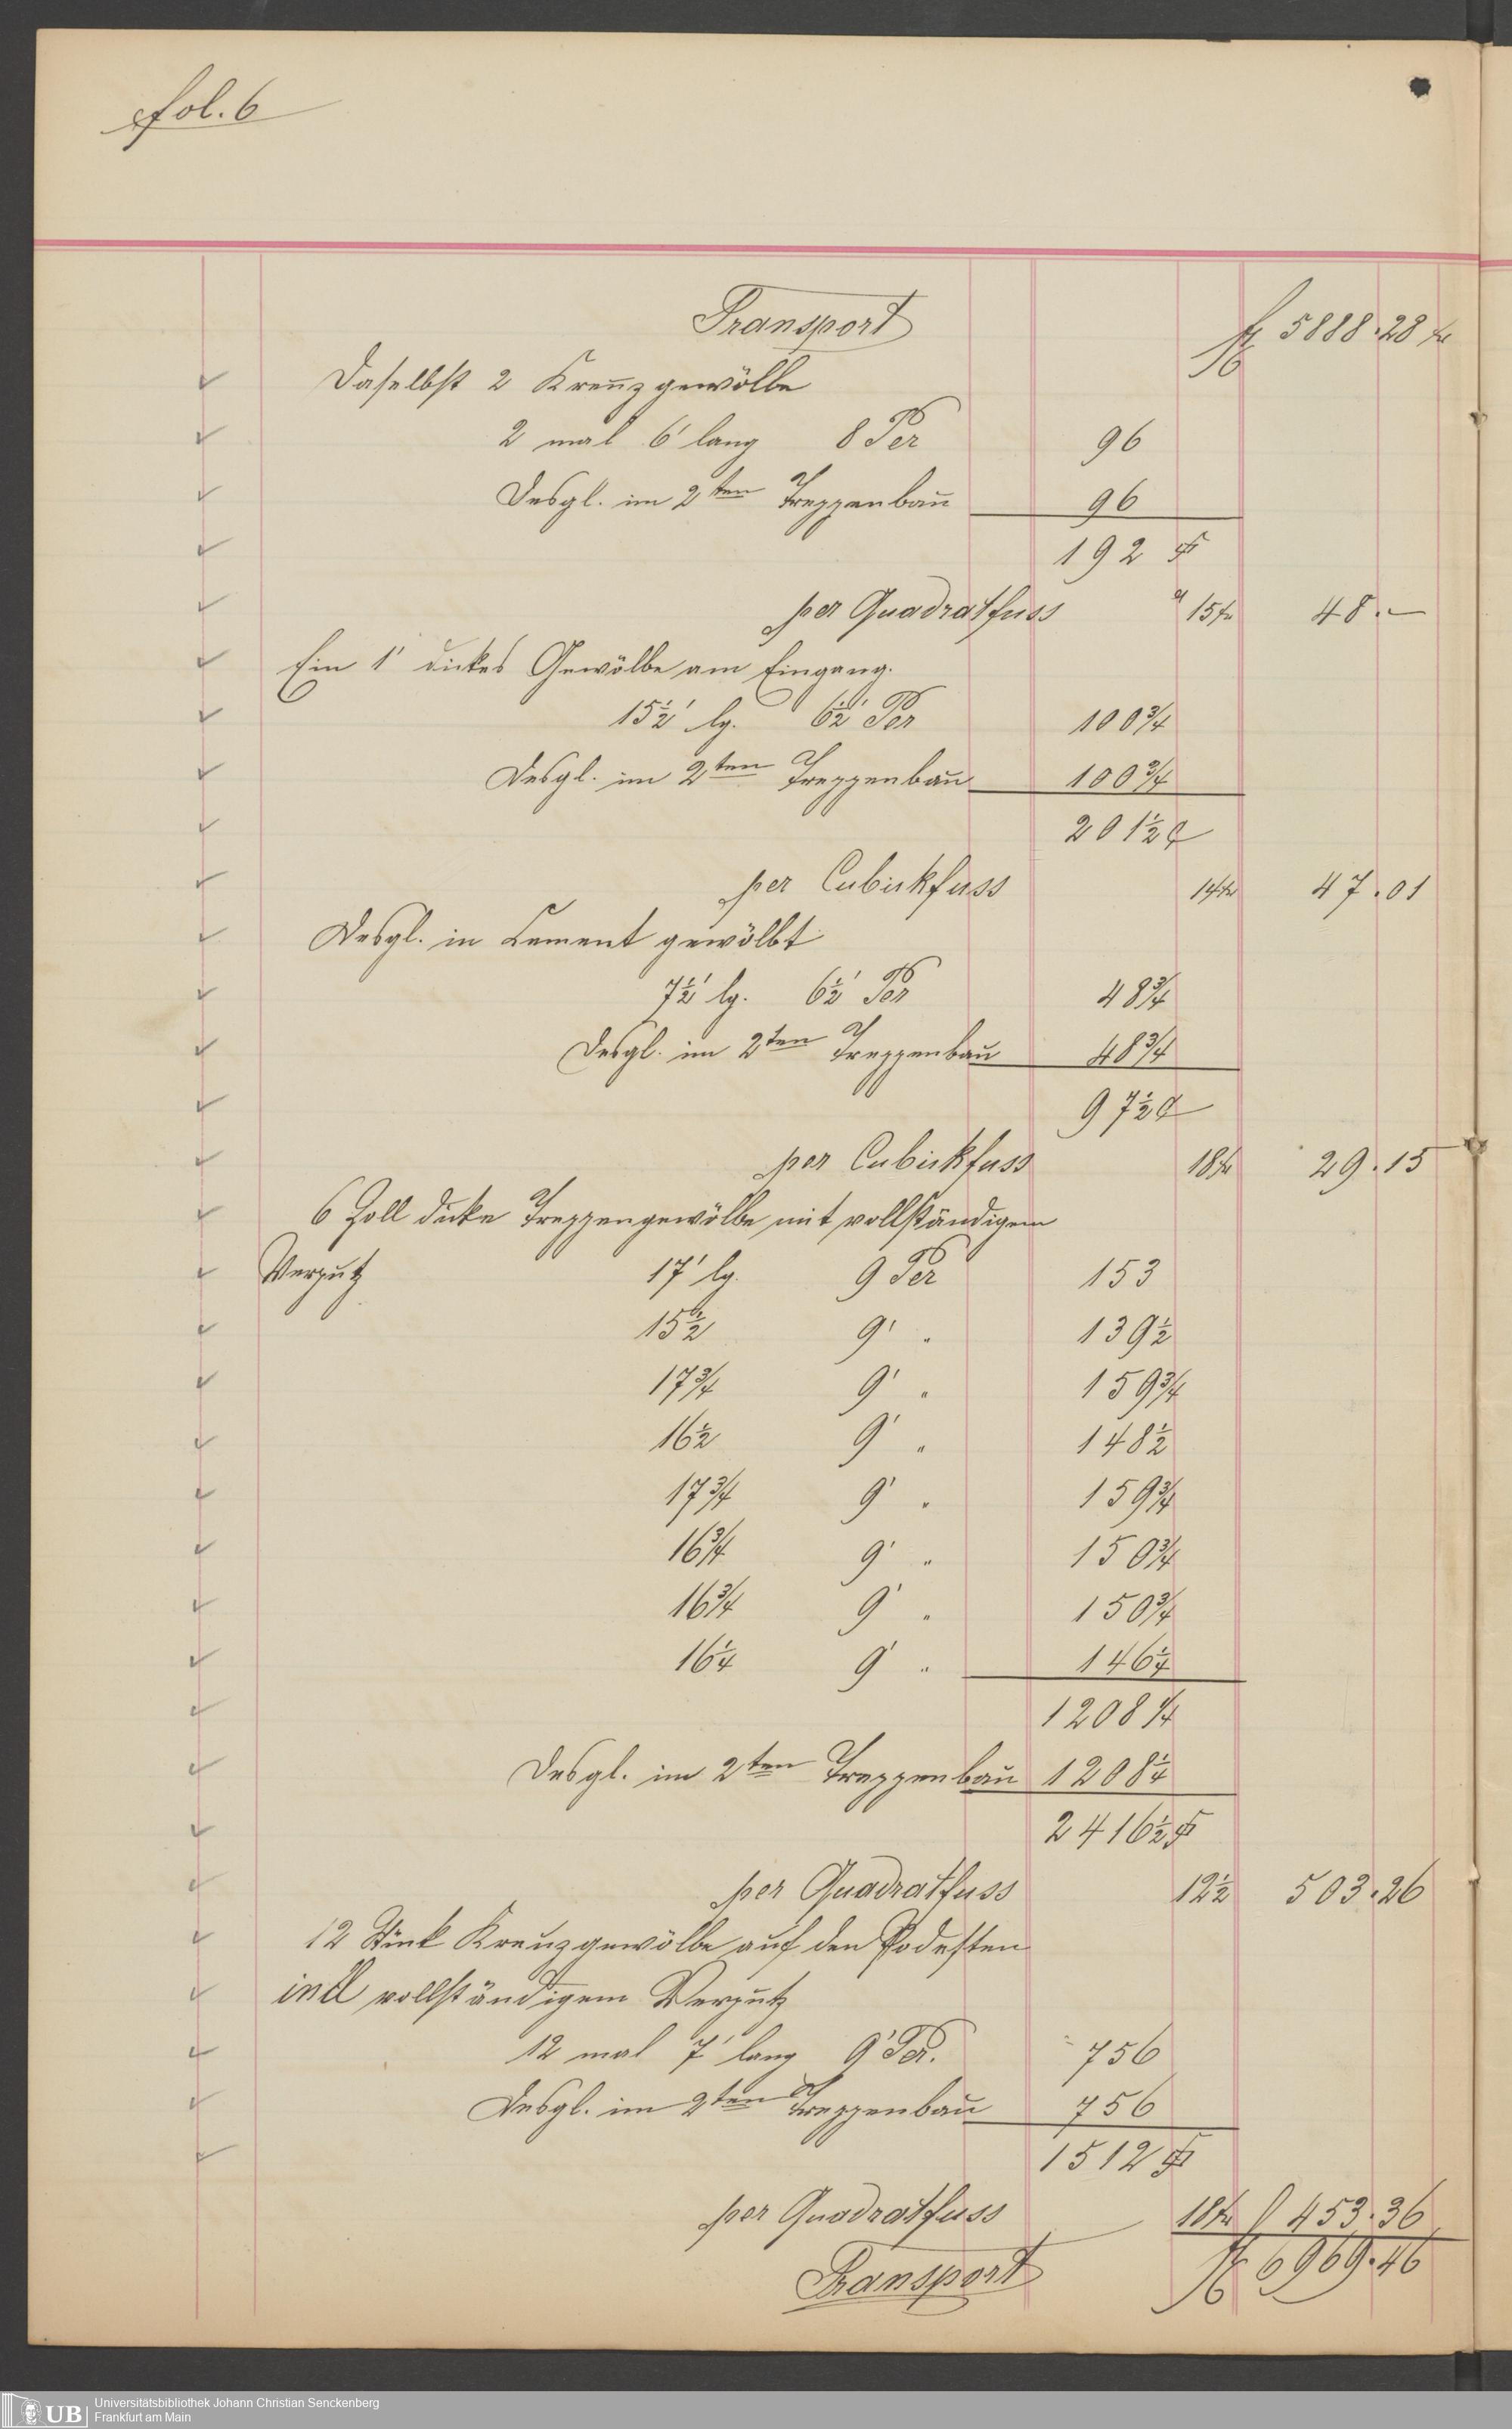 fol. 6
Transport fl 5888.28 kr
Daselbst 2 Kreuzgewölbe
2 mal 6' lang 8 Per 96
Desgl. im 2ten Treppenbau 96
192
per Quadratfuss a 15 kr 48.—
Ein 1' dickes Gewölbe am Eingang.
15½' lg. 6½' Per 100¾
Desgl. im 2ten Treppenbau 100¾
201½
per Cubickfuss 14 kr 47.01
Desgl. in Cement gewölbt
7½' lg. 6½' Per 48¾
Desgl. im 2ten Treppenbau 48¾
97½
per Cubickfuss 18 kr 29.15
6 Zoll dicke Treppengewölbe mit vollständigem
Verputz 17' lg. 9 Per 153
15½ 9' " 139½
17¾ 9' " 159¾
16½ 9' " 148½
17¾ 9' " 159¾
16¾ 9' " 150¾
16¾ 9' " 150¾
16¼ 9' " 146¼
1208¼
Desgl. im 2ten Treppenbau 1208¼
2416½
per Quadratfuss 12½ 503.26
12 Stück Kreuzgewölbe auf den Podesten
incl vollständigem Verputz
12 mal 7' lang 9' Per. 756
Desgl. im 2ten Treppenbau 756
1512
per Quadratfuss 18 kr 453.36
Transport fl 6969.46
UB
Universitätsbibliothek Johann Christian Senckenberg
Frankfurt am Main